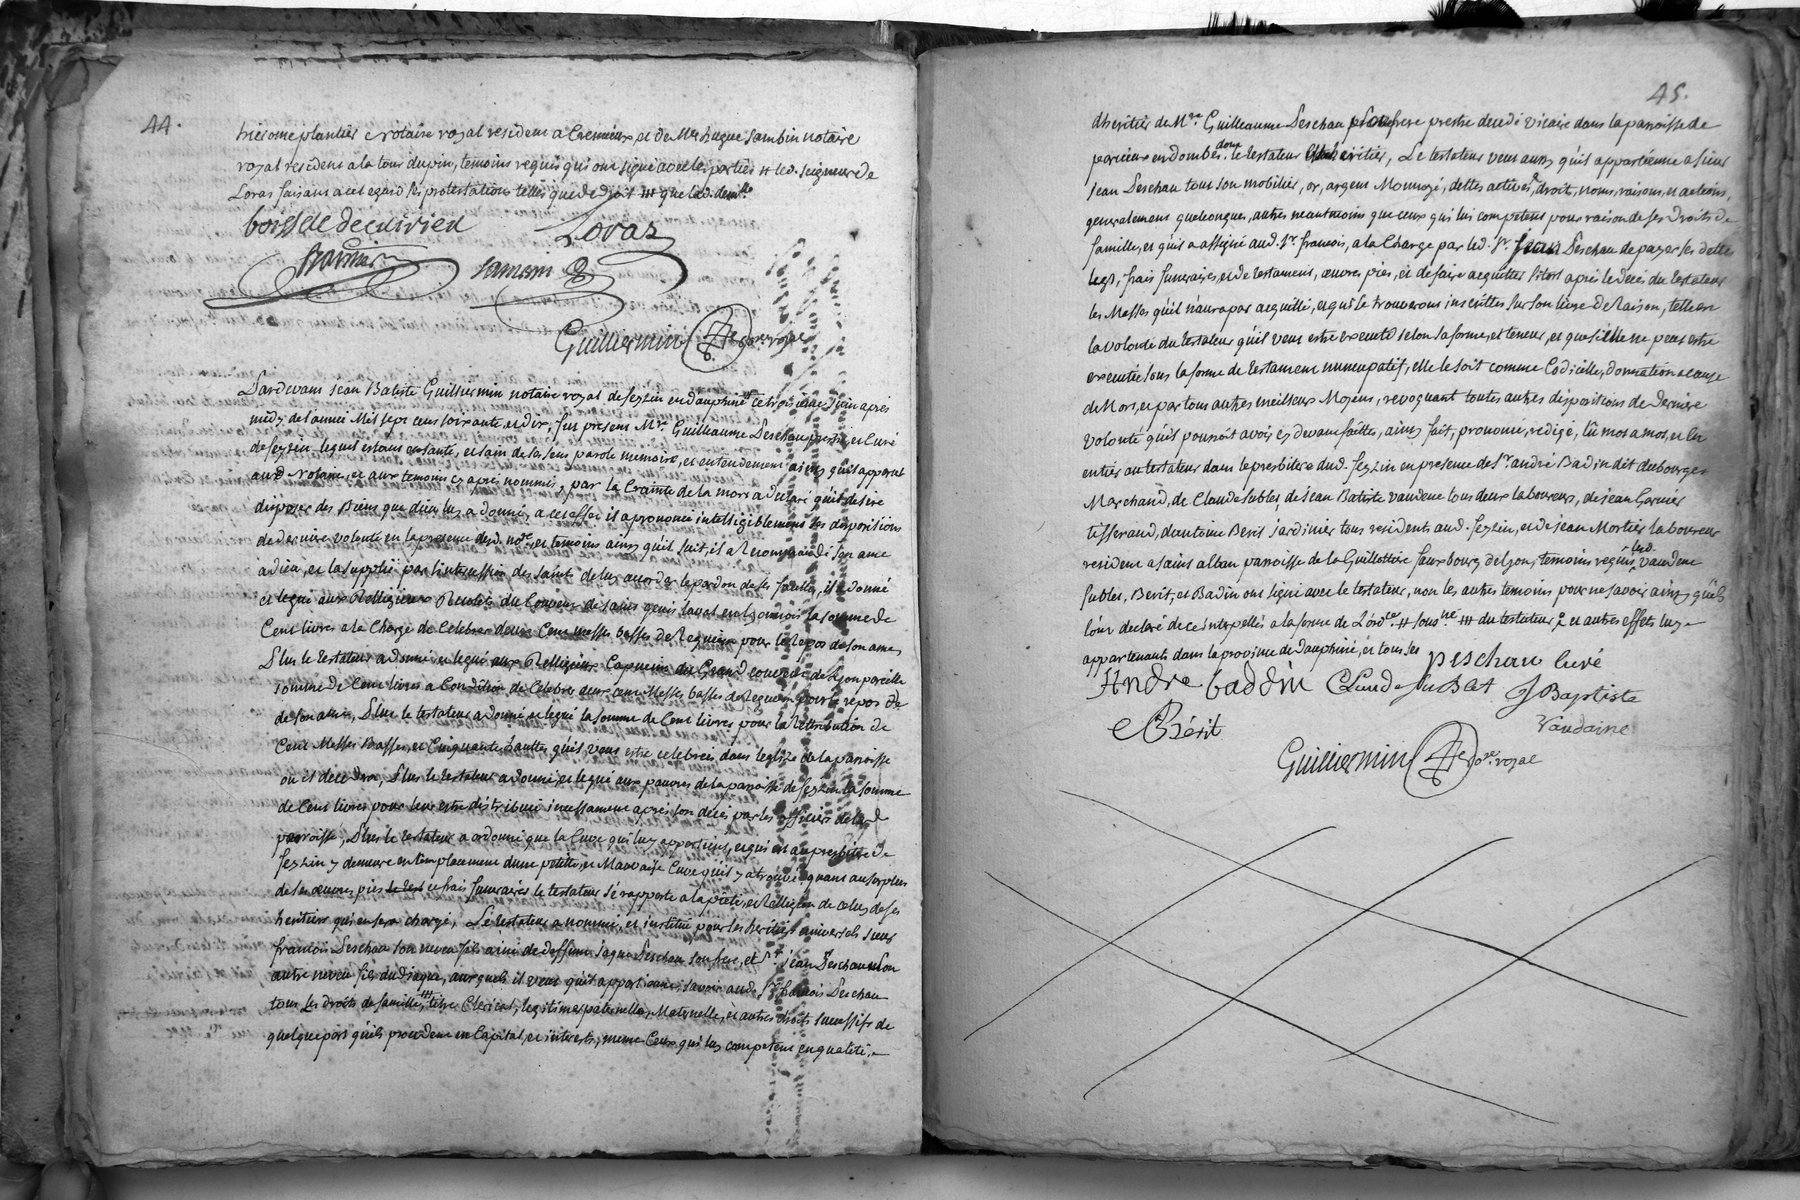 44.
hierome plantier notaire royal resident a Cremieux et de Me hugue Sambin notaire
royal resident a la tour du pin, temoins requis qui ont signé avec les parties # led. seigneur de
Loras faisant a cet egard les protestations telles que de droit ## que lad. demlle
boissac decuirieu Loras
Guilliermin Nre royal
Pardevant jean Batiste Guilliermin notaire royal de feyzin en dauphiné ce troisieme juin apres
midy de l'année Mil sept cent soixante et dix, fut present Mre Guilleaume Peschau pretre et Curé
de feyzin lequel estant en santé, et sain de ses sens parole memoire, et entendement ainsy qu'il apparut
aud Notaire, et aux temoins cy apres nommés, par la Crainte de la mort a declaré qu'il desire
disposer des Biens que dieu luy a donné, a cet effet il a prononcé intelligiblement ses dispositions
de derniere volonté en la presence dud. nore, et temoins ainsy qu'il suit, il a Recommandé son ame
a dieu, et la supplié par l'intercession des saints de luy accorder le pardon de ses fautes, il a donné
et legué aux Relligieux Recolets du Couvent de saint genis laval en Lyonnois la somme de
Cent livres a la Charge de Celebrer deux Cent messes basses de Requiem pour le repos de son ame,
Plus le testateur a donné et legué aux Relligieux Capucins du Grand couvent de Lyon pareille
somme de Cent livres a Condition de Celebrer deux cent Messes basses de Requiem pour le repos de
de son ame, Plus le testateur a donné et legué la somme de Cent livres pour la Retribution de
Cent Messes Basses, et Cinquante hautes qu'il veut estre celebrées dans l'eglise de la paroisse
ou il decedra, Plus le testateur a donné et legué aux pauvres de la paroisse de feyzin la somme
de Cent livres pour leur estre distribuée incessament apres son decès par les officiers de lad
parroisse, Plus le testateur a ordonné que la Cuve qui luy appartient, et qui est au presbitere de
feyzin y demeure en remplacement d'une petitte, et Mauvaise Cuve qu'il y a trouvé, quant au surplus
de ses œuvres pies et frais funeraires le testateur s'e rapporte a la pieté, et Relligion de celuy de ses
heritiers qui en sera chargé, Le testateur a nommé, et institué pour ses heritiers universels sieur
francois Peschau son neveu fils ainé de deffunt jaque Peschau son frere, et Sr jean Peschau son
autre neveu fils dud jaque, auxquels il veut qu'il appartienne, savoir aud. Sr francois Peschau
tous ses droits de famille, ## titre Clerical, legitimes paternelle, Maternelle, et autres droits successifs de
quelque part qu'ils procedent en Capital, et interests, meme Ceux qui luy competent en qualité
45.
d'heritier de Mre Guilleaume Peschau son frere prestre decedé vicaire dans la paroisse de
perrieux en dombes dont le testateur est heritier, Le testateur veut aussy qu'il appartienne a sieur
jean Peschau tout son mobilier, or, argent Monnoyé, dettes actives, droit, noms, raisons, et actions,
generalement quelconques, autres neantmoins que ceux qui lui competent pour raison de ses Droits de
famille, et qu'il a assigné aud. Sr. francois, a la Charge par led. Sr. jean Peschau de payer ses dettes
legs, frais funeraires, et de testament, œuvres pies, et de faire acquitter sitost après le decès du testateur
les Messes qu'il n'aura pas acquitté, et qui se trouveront inscrittes sur son livre de Raison, telle est
la volonté du testateur qu'il veut estre executé selon sa forme, et teneur, et que si elle ne peut estre
executée sous la forme de testament nuncupatif, elle le soit comme Codicille, donnation a cause
de Mort, et par tous autres meilleurs Moyens, revoquant toutes autres dispositions de derniere
volonté qu'il pourroit avoir cy devant faittes, ainsy fait, prononcé, redigé, lû mot a mot, et en
entier au testateur dans le presbitere dud. feyzin en presence de Sr. andré Badin dit dubourget
Marchand, de Claude sublet, de jean Batiste vaudene tous deux laboureurs, de jean Garnier
tisserand, d'antoine Berit jardinier tous residents aud. feyzin, et de jean Mortier laboureur
resident a saint alban parroisse de la Guillottiere faux bourg de Lyon, temoins requis, lesd. vaudene
sublet, Berit, et Badin ont signé avec le testateur, non les autres temoins pour ne savoir ainsy qu'ils
l'ont declaré de ce interpellé a la forme de L'ordce. # sousne ## du testateur & et autres effets luy
appartenants dans la province de dauphiné, et tous ses
peschau Curé
Andre baddin Claude suBlet J Baptiste
Vaudaine
A Bérit
Guilliermin Nre royal